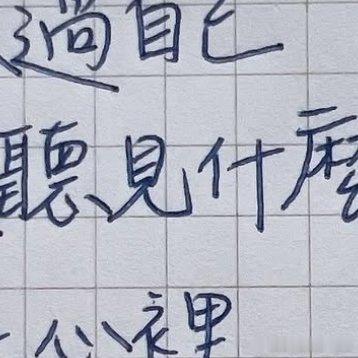 過自己
聽見什麼
心裡